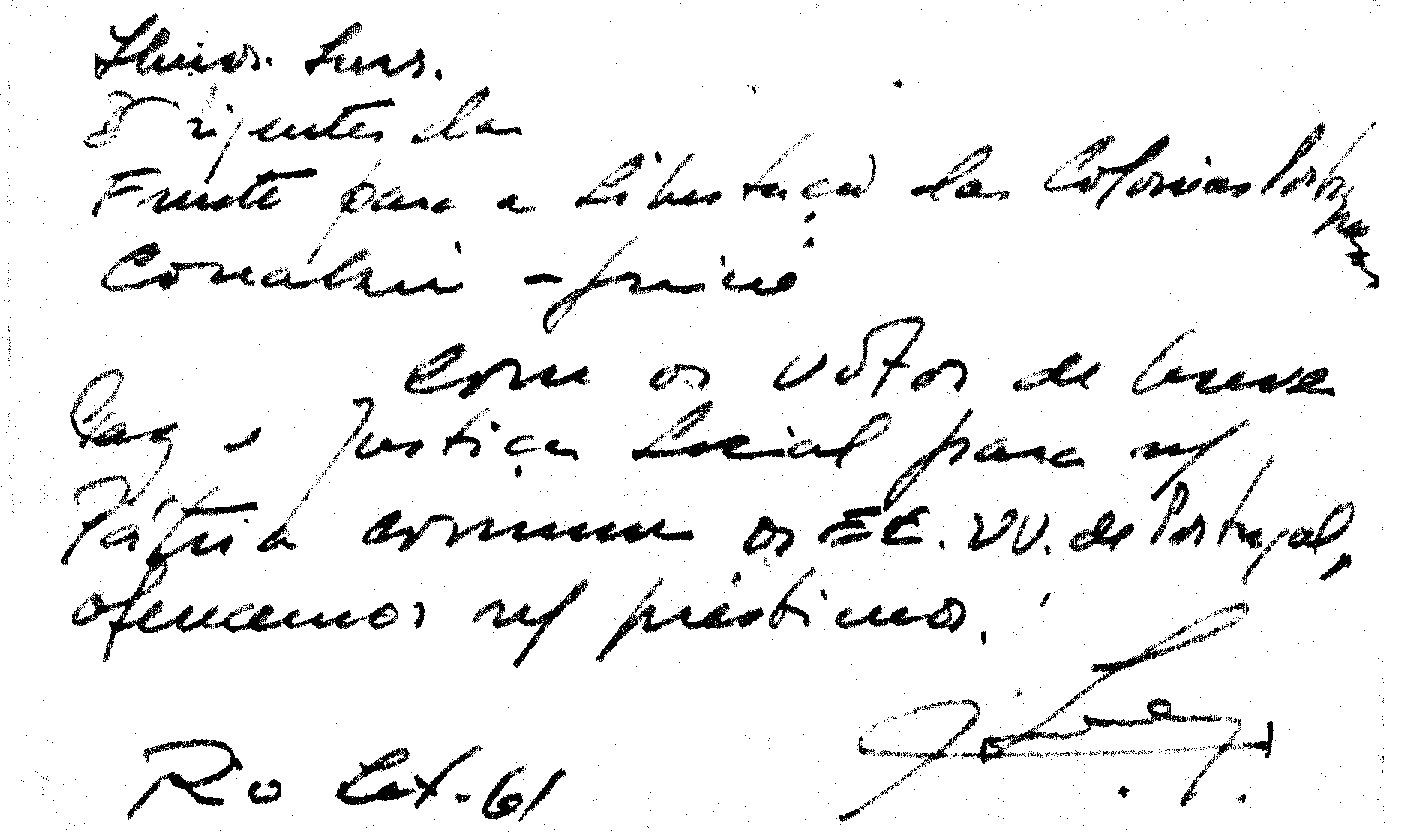 Ilmos. Snrs.
Dirigentes da
Frente para a Libertação das Colonias Portuguezas
Conakri - Guiné
Com os vótos de breve
Paz e Justiça Social para n/
Pátria comum os EE. UU. de Portugal,
oferecemos n/ préstimos.
Rio Set.-61